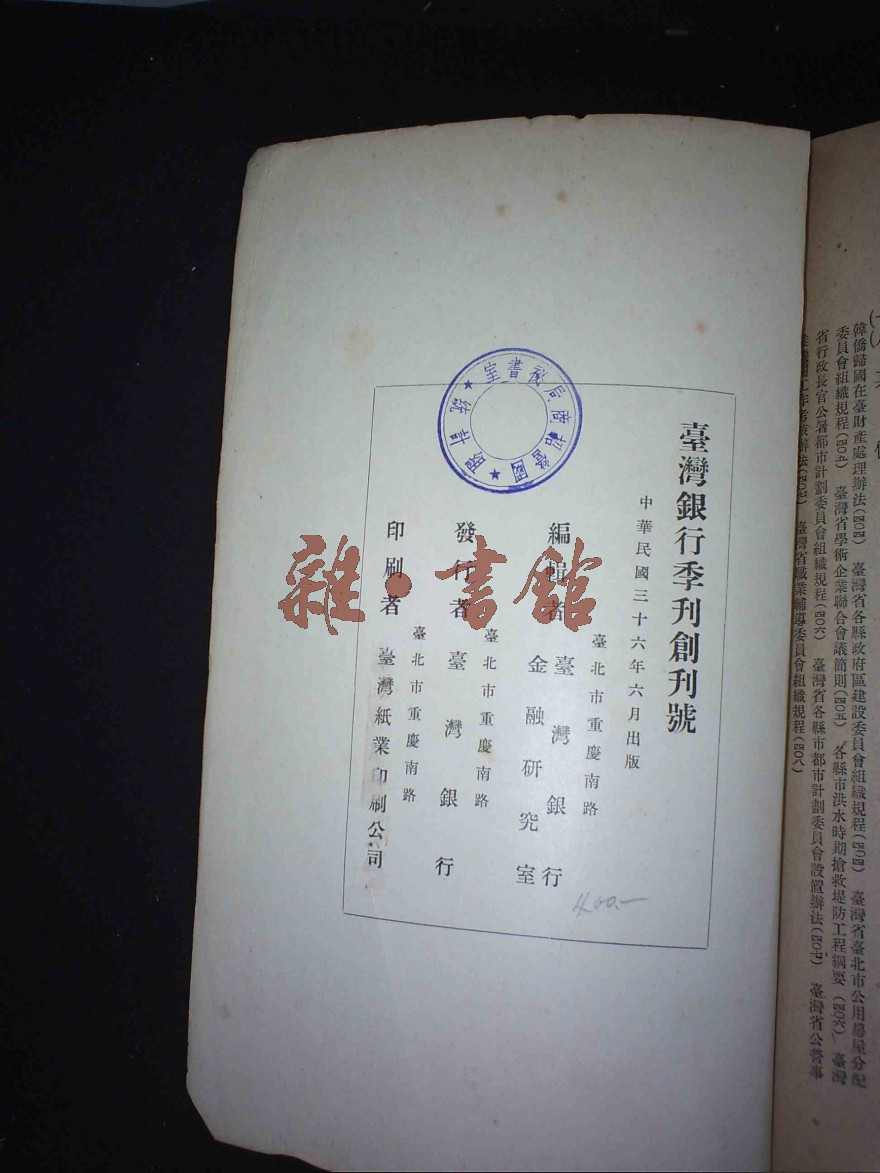 臺灣銀行季刊創刊號
中華民國三十六年六月出版
臺北市重慶南路
編輯者 臺灣銀行
金融研究室
臺北市重慶南路
發行者 臺灣銀行
臺北市重慶南路
印刷者 臺灣紙業印刷公司
400.—
國營招商局秘書室
統計
雜·書館
韓僑歸國在臺財產處理辦法(四〇四) 臺灣省各縣政府區建設委員會組織規程(四〇四) 臺灣省臺北市公用房屋分配
委員會組織規程(四〇五) 臺灣省學術企業聯合會議簡則(四〇五) 各縣市洪水時期搶救堤防工程綱要(四〇六) 臺灣
省行政長官公署都市計劃委員會組織規程(四〇六) 臺灣省各縣市都市計劃委員會設置辦法(四〇七) 臺灣省公營事
考核辦法(四〇七) 臺灣省職業輔導委員會組織規程(四〇八)